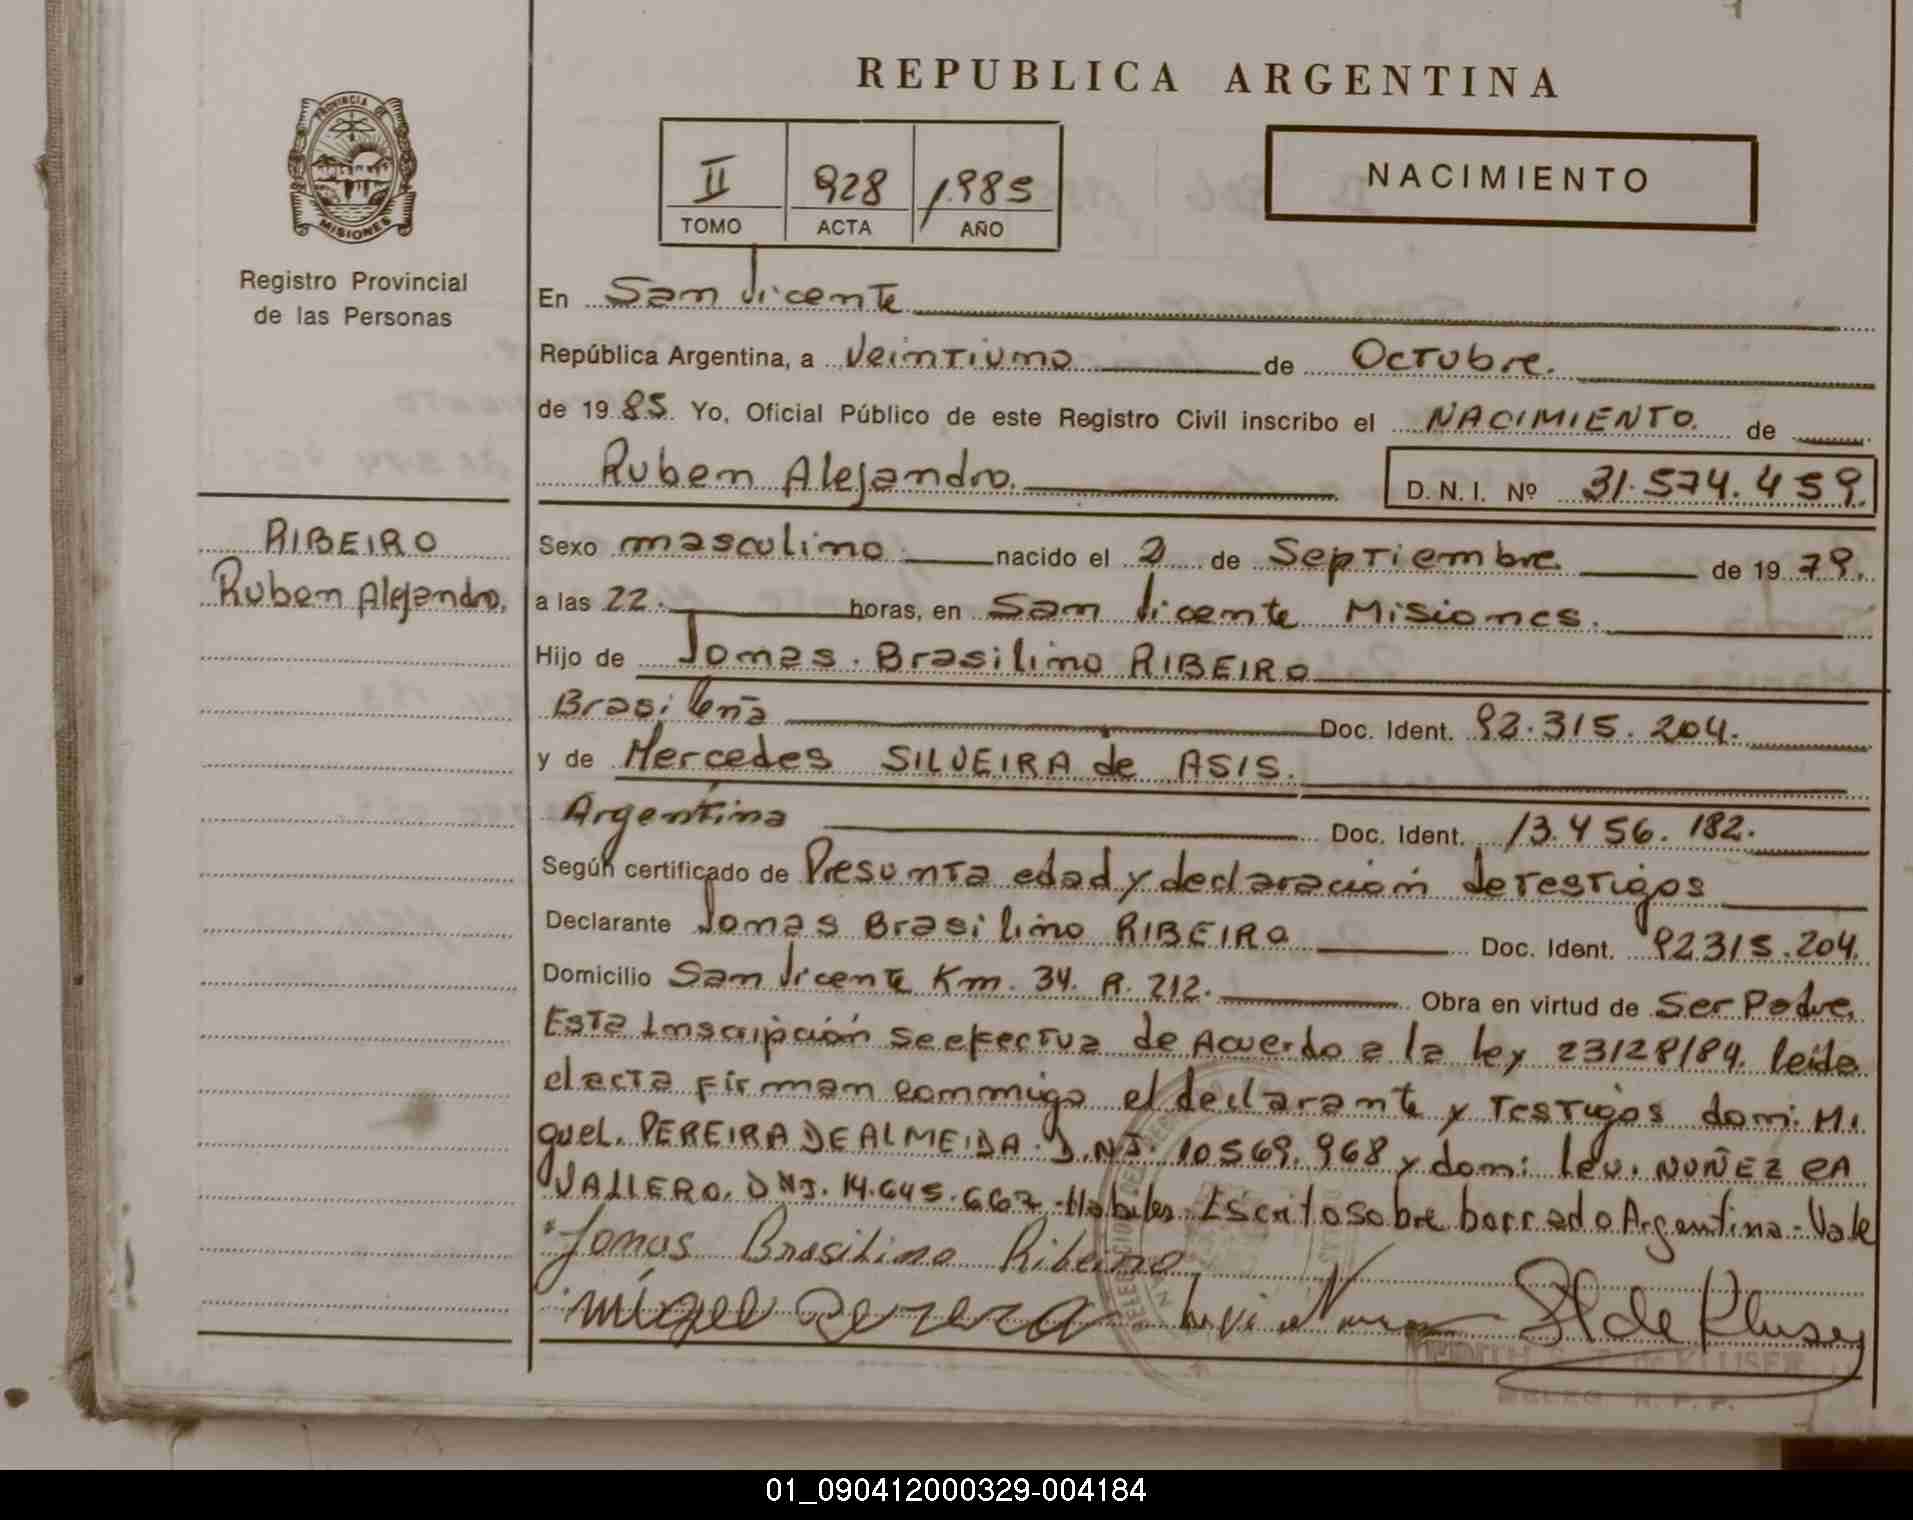 REPUBLICA ARGENTINA
PROVINCIA DE
MISIONES
II 928 1.985
TOMO ACTA AÑO
NACIMIENTO
Registro Provincial
de las Personas
En San Vicente
República Argentina, a Veintiuno de Octubre.
de 19 85. Yo, Oficial Público de este Registro Civil inscribo el NACIMIENTO. de
Ruben Alejandro. D. N. I. Nº 31.574.459.
RIBEIRO
Ruben Alejandro.
Sexo masculino nacido el 2 de Septiembre de 19 79.
a las 22. horas, en San Vicente Misiones.
Hijo de Jomas. Brasilino RIBEIRO
Brasileña Doc. Ident. 92.315.204.
y de Mercedes SILVEIRA de ASIS.
Argentina Doc. Ident. 13.456.182.
Según certificado de Presunta edad y declaración de testigos
Declarante Jomas Brasilino RIBEIRO Doc. Ident. 92.315.204.
Domicilio San Vicente Km. 34. R. 212. Obra en virtud de Ser Padre.
Esta Inscripción se efectua de Acuerdo a la ley 23128/84. leida
el acta firman conmigo el declarante y Testigos don: Mi
guel. PEREIRA DE ALMEIDA. D.NI. 10569.968 y don: levi. NUÑEZ CA
VALLERO. DNI. 14.645.667 - Habiles. Escrito sobre borrado Argentina - Vale
Jomas Brasilino Ribeiro
miguel Perera Levi